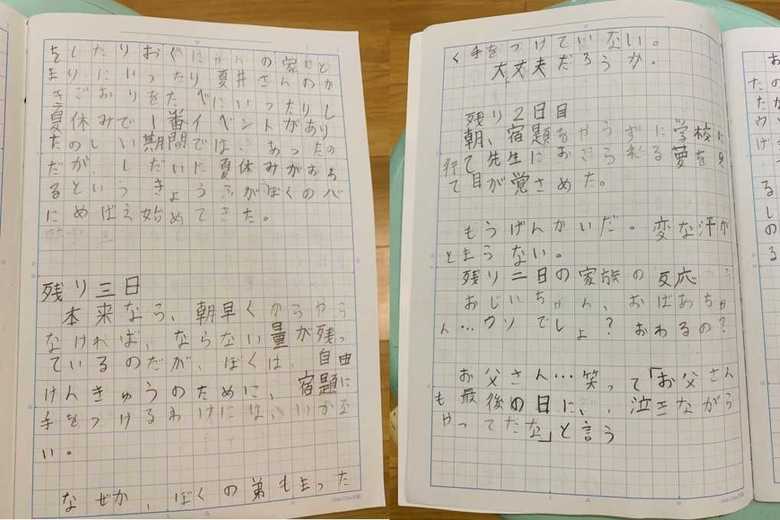 をしたりおくにかんの家にと
まりにいったり夏井さんのか
きごおりをたべにいったりし
夏休みで1番イベントがあり
たのしい期間ではあったの
だが、しだいに夏休みがおわ
るというきょうふがぼくの心
にめばえ始めてきた。
残り三日
本来なら、朝早くからやら
なければ、ならない量が残っ
ているのだが、ぼくは、自由
けんきゅうのために、宿題に
手をつけるわけにはいかな
い。
なぜか、ぼくの弟もまった
く手をつけていない。
大丈夫だろうか。
残り2日目
朝、宿題をやらずに学校に
行て先生におこられる夢を見
て目が覚さめた。
もうげんかいだ。変な汗が
とまらない。
残り二日の家族の反応
おじいちゃん、おばあちゃ
ん…ウソでしょ?おわるの?
お父さん…笑って「お父さん
も最後の日に、泣きながら
やってたな」と言う